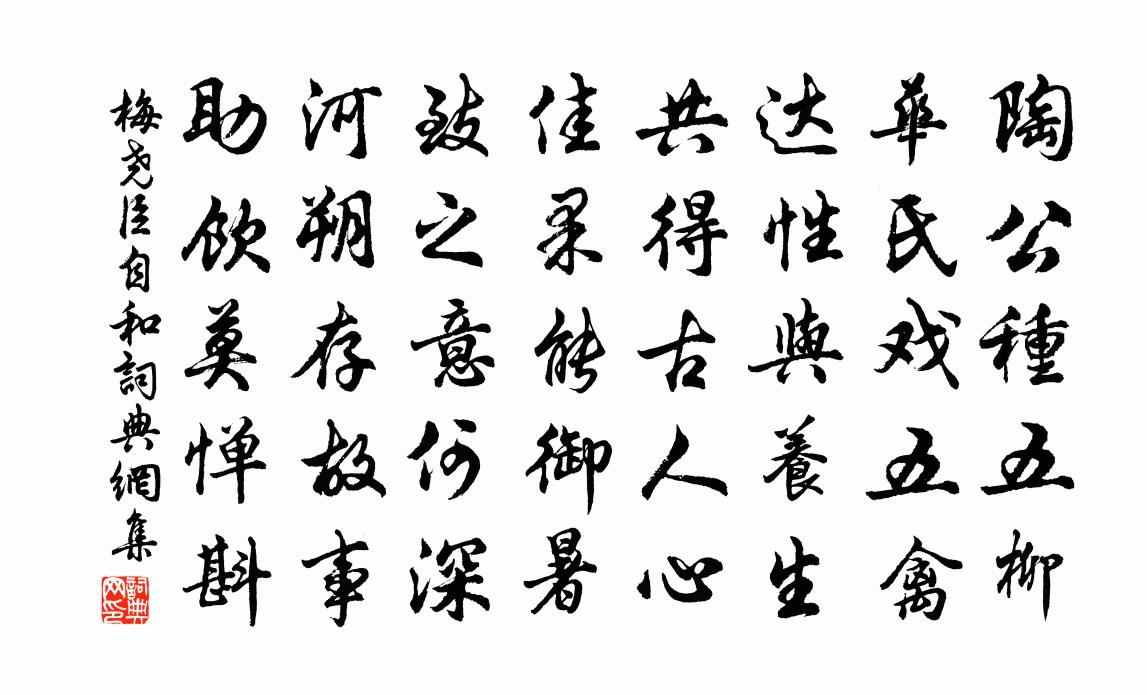 陶公種五柳
華氏戏五禽
达性與養生
共得古人心
佳果能御暑
致之意何深
河朔存故事
助飲莫惮斟
梅尧臣自和詞典網集
詞典網印